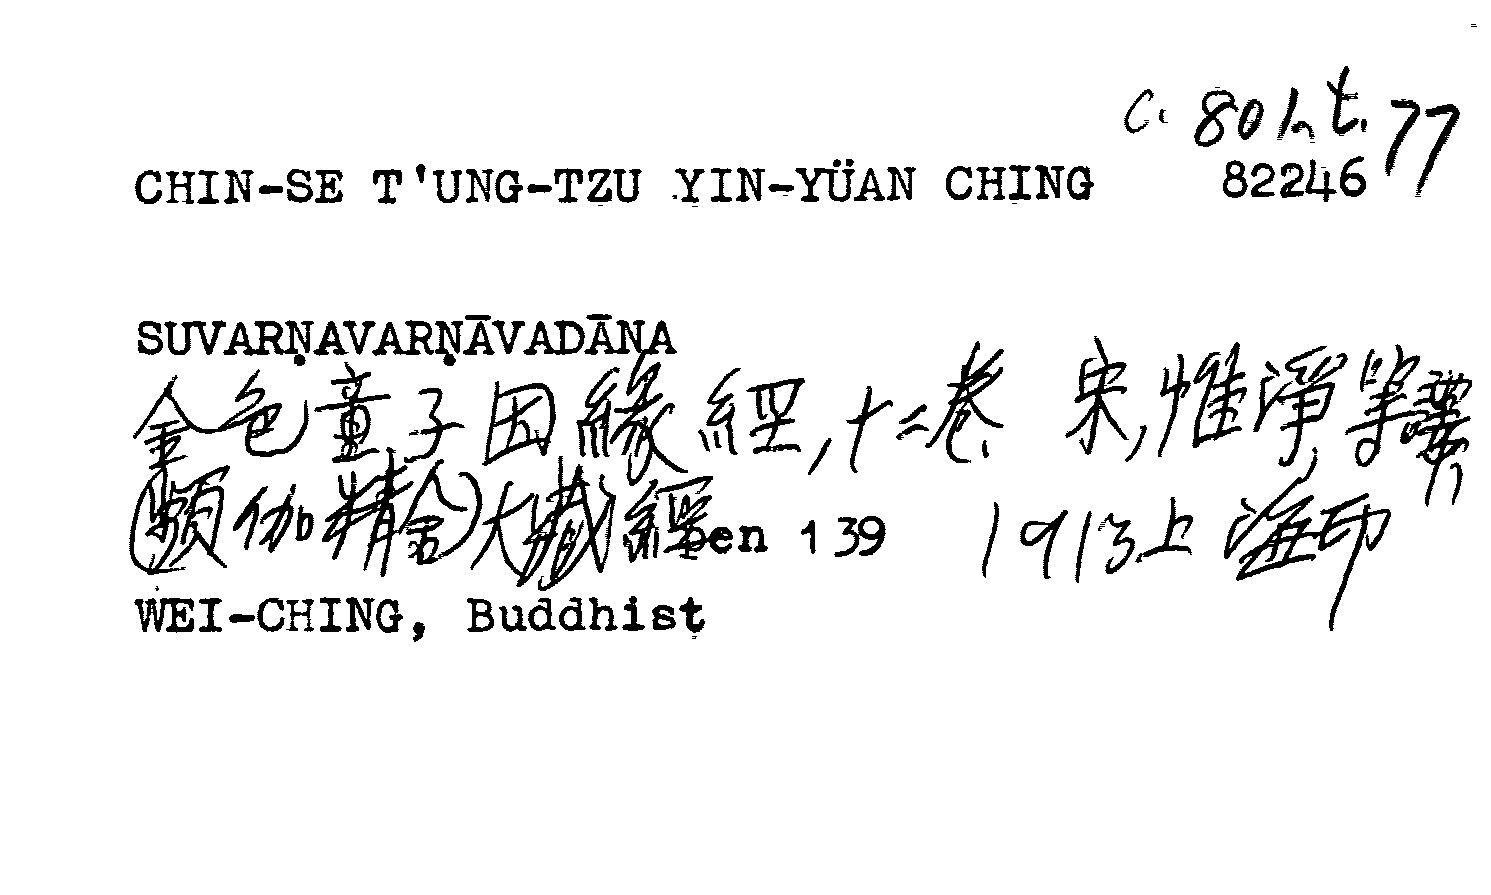 C. 80 h.t. 77
CHIN-SE T'UNG-TZU YIN-YÜAN CHING 82246
SUVARṆAVARṆĀVADĀNA
金色童子因緣經,十二卷 宋,惟淨等譯,
(頻伽精舍)大藏經 pen 139 1913上海印
WEI-CHING, Buddhist